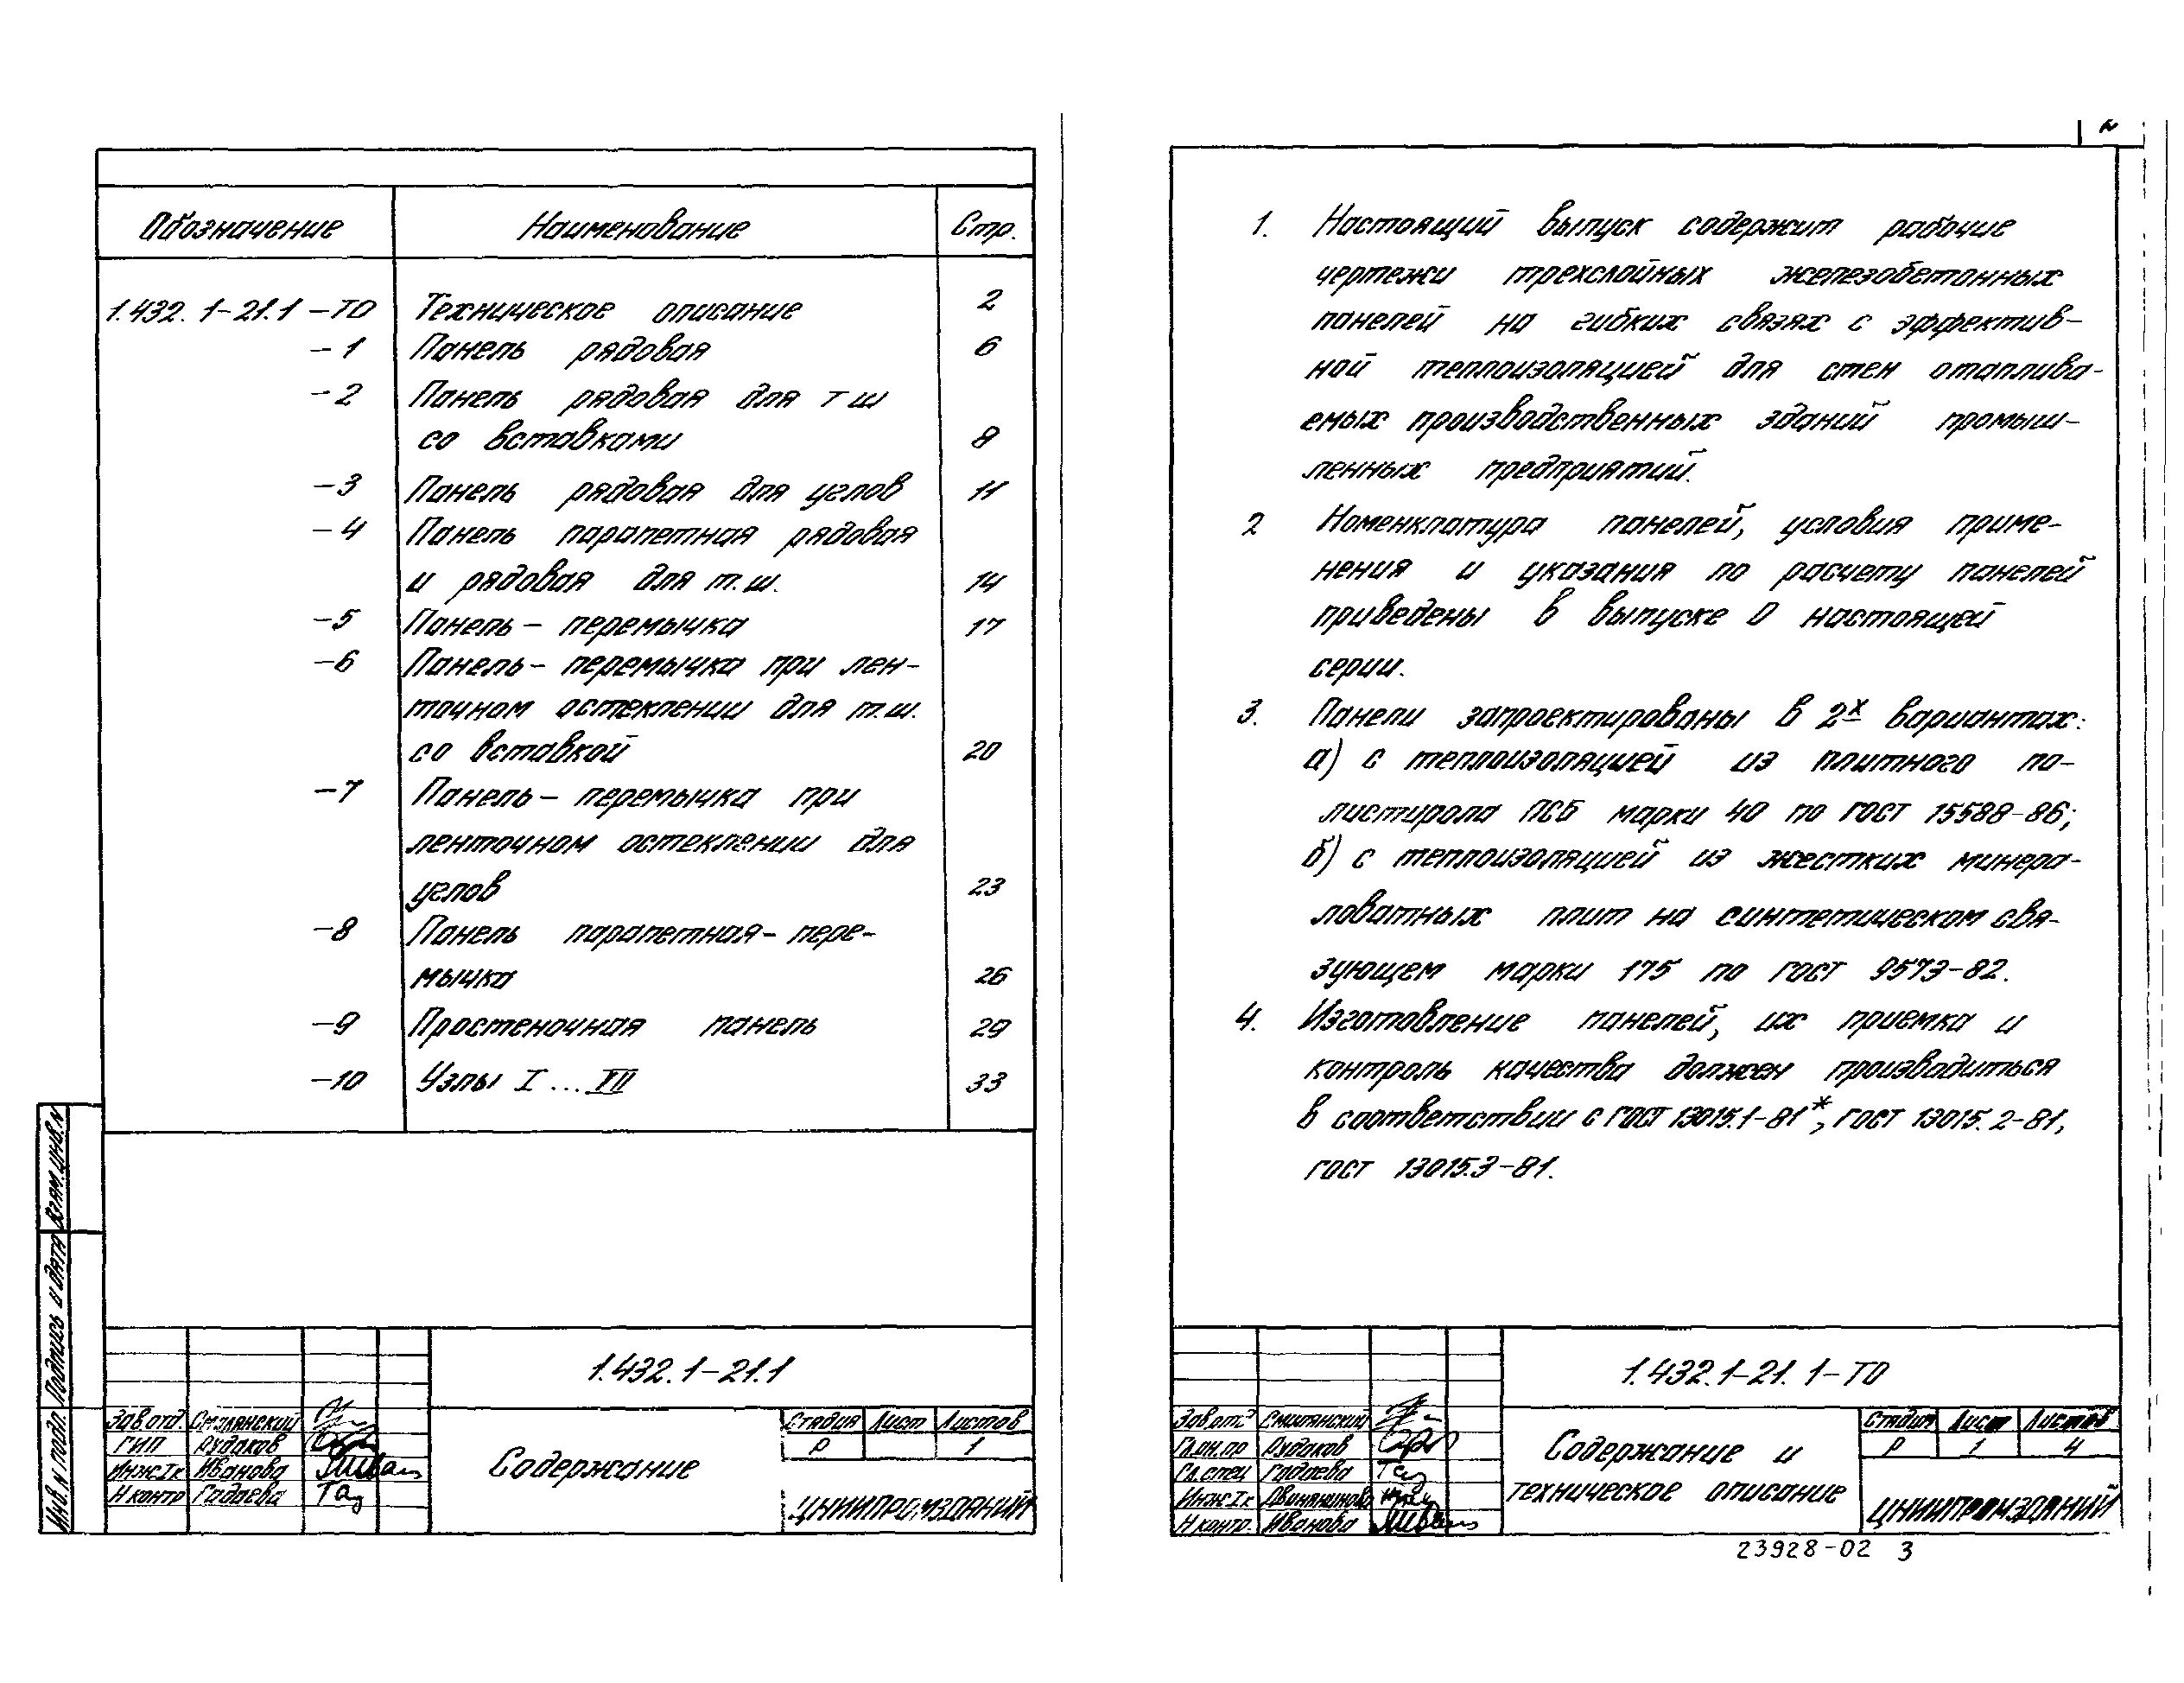 Обозначение Наименование Стр.
1.432.1-21.1-ТО Техническое описание 2
-1 Панель рядовая 6
-2 Панель рядовая для т ш
со вставками 8
-3 Панель рядовая для углов 11
-4 Панель парапетная рядовая
и рядовая для т.ш. 14
-5 Панель-перемычка 17
-6 Панель-перемычка при лен-
точном остеклении для т.ш.
со вставкой 20
-7 Панель-перемычка при
ленточном остеклении для
углов 23
-8 Панель парапетная-пере-
мычка 26
-9 Простеночная панель 29
-10 Узлы I...XII 33
Взам.инв.N
Подпись и дата
Инв.N подл.
1.432.1-21.1
Зав.отд. Смилянский
ГИП Рудаков
Инж.Iк Иванова
Н контр Гадаева
Содержание
Стадия Лист Листов
Р 1
ЦНИИПРОМЗДАНИЙ
2
1. Настоящий выпуск содержит рабочие
чертежи трехслойных железобетонных
панелей на гибких связях с эффектив-
ной теплоизоляцией для стен отаплива-
емых производственных зданий промыш-
ленных предприятий.
2 Номенклатура панелей, условия приме-
нения и указания по расчету панелей
приведены в выпуске 0 настоящей
серии.
3. Панели запроектированы в 2х вариантах:
а) с теплоизоляцией из плитного по-
листирола ПСБ марки 40 по ГОСТ 15588-86;
б) с теплоизоляцией из жестких минера-
ловатных плит на синтетическом свя-
зующем марки 175 по ГОСТ 9573-82.
4. Изготовление панелей, их приемка и
контроль качества должен производиться
в соответствии с ГОСТ 13015.1-81*, ГОСТ 13015.2-81,
ГОСТ 13015.3-81.
1.432.1-21.1-ТО
Зав.отд Смилянский
Гл.ин.пр Рудаков
Гл.спец Гадаева
Инж.Iк
Н контр. Иванова
Содержание и
техническое описание
Стадия Лист Листов
Р 1 4
ЦНИИПРОМЗДАНИЙ
23928-02 3